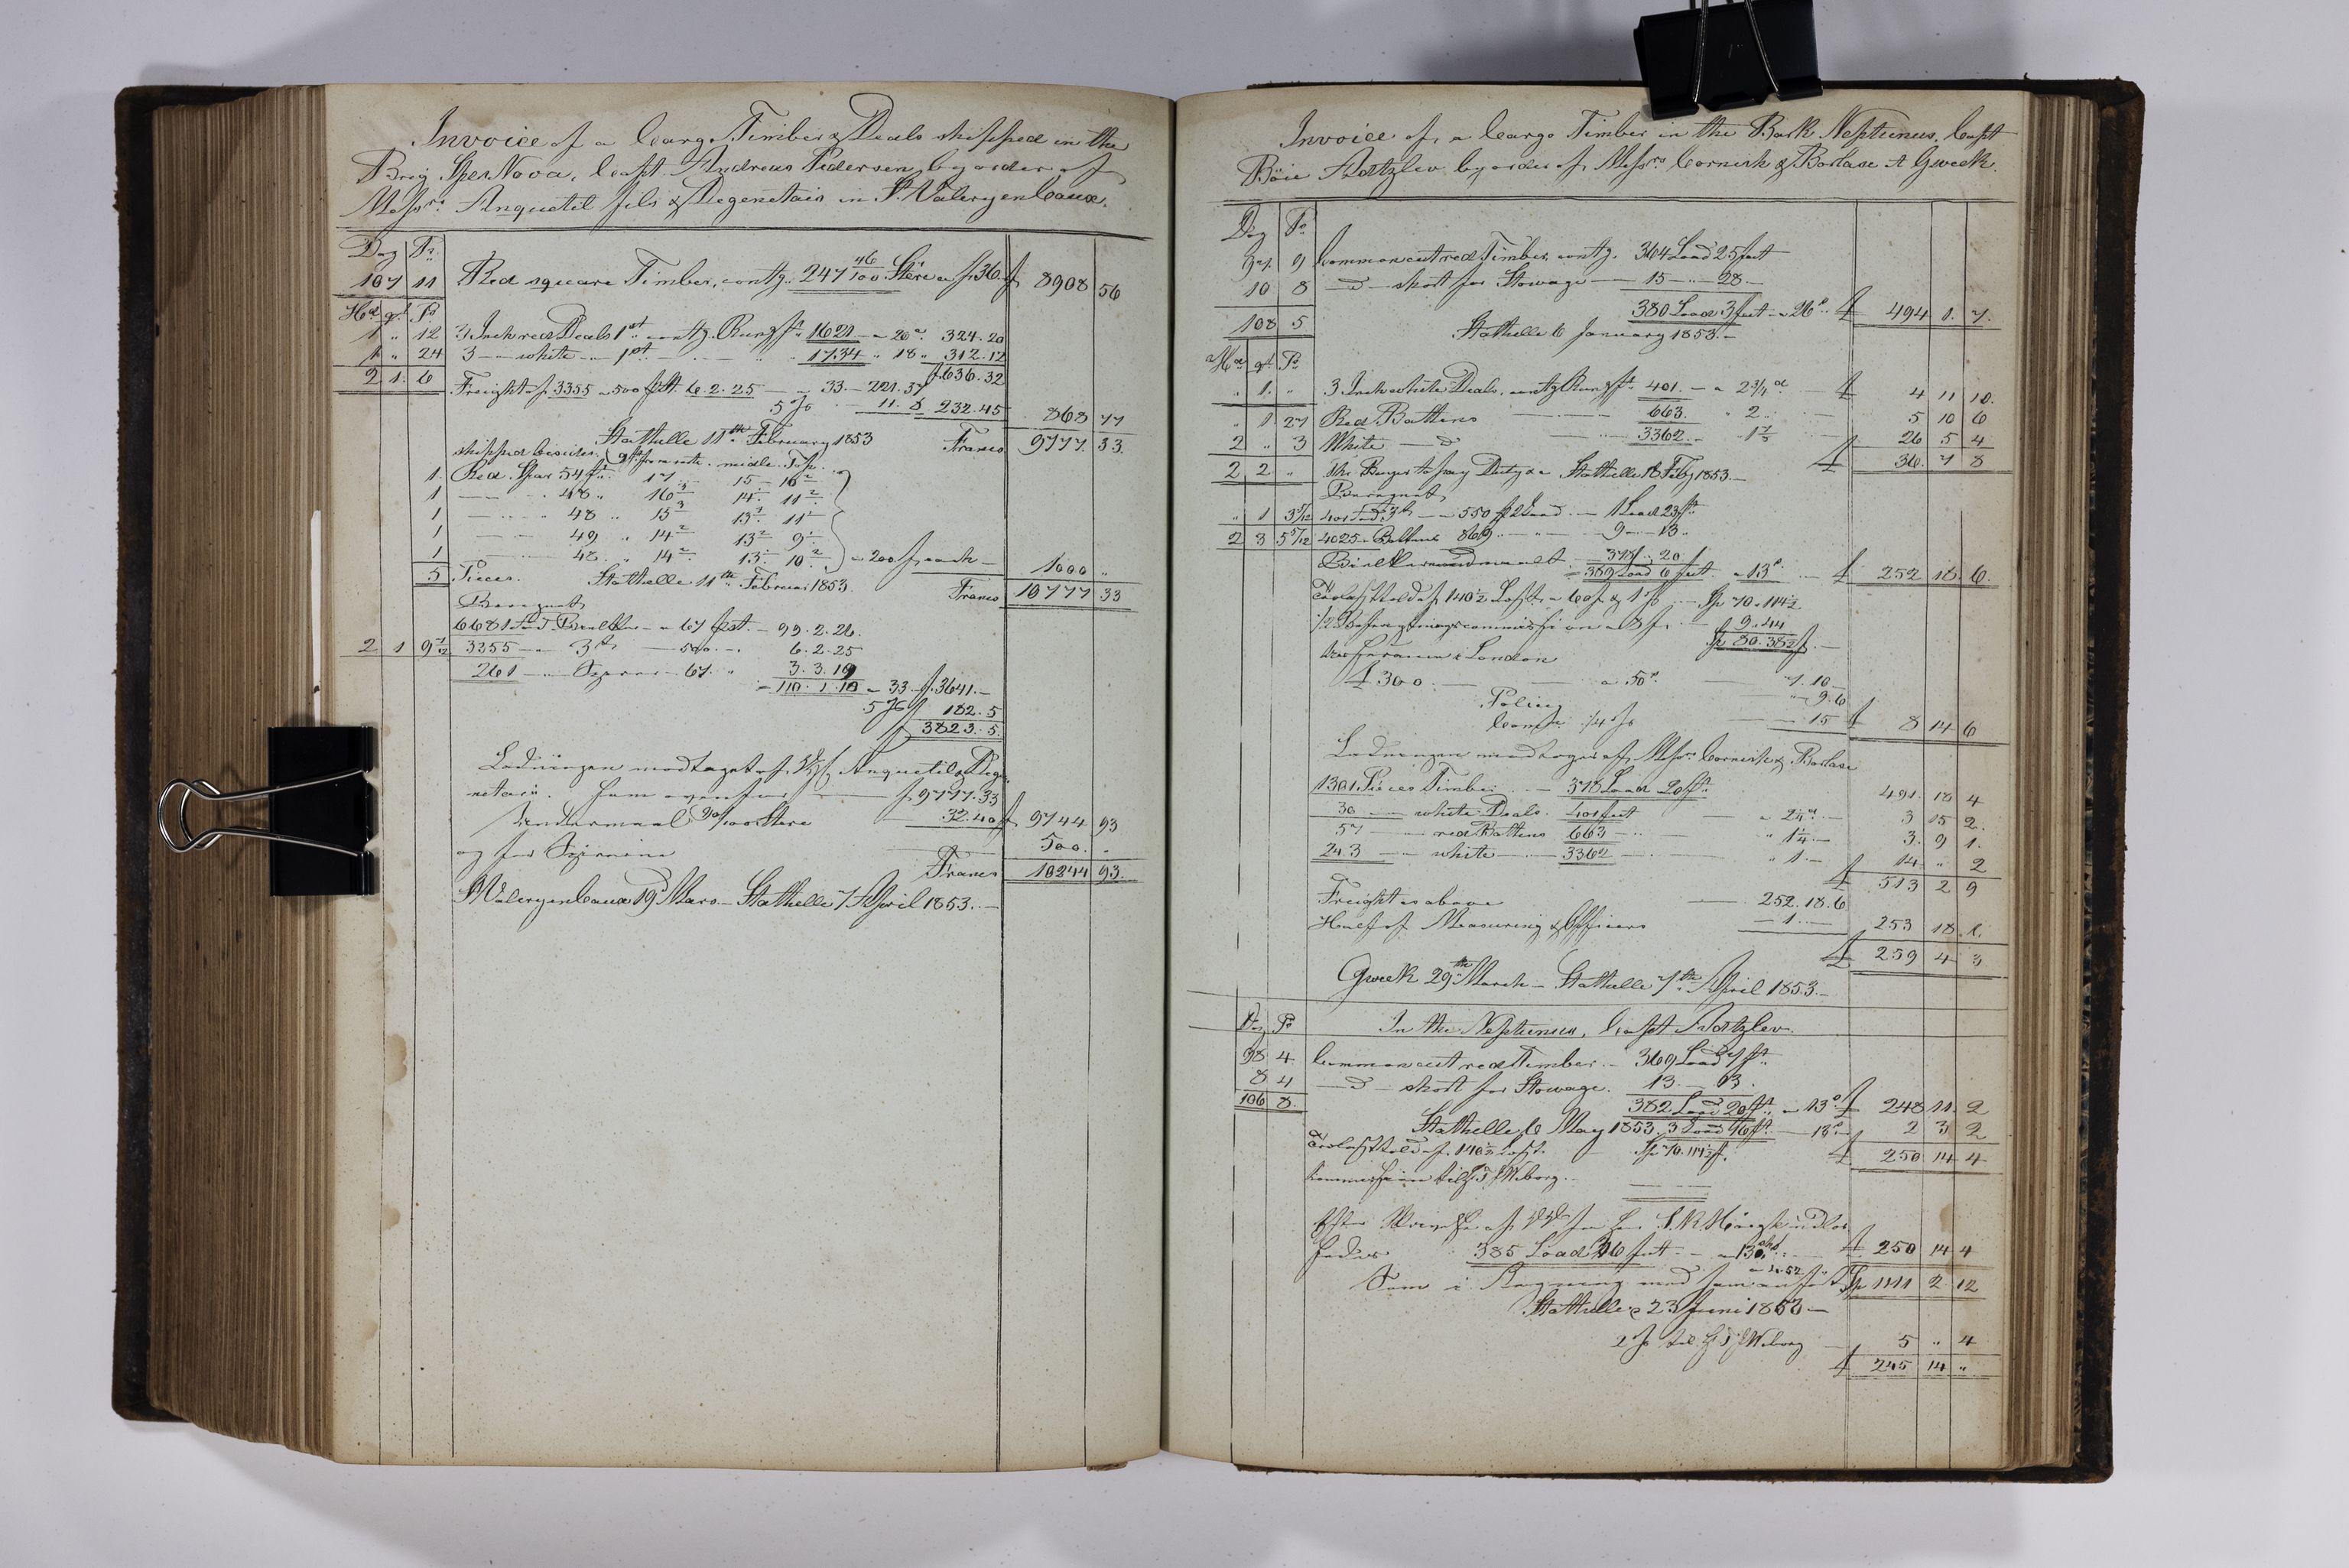 Invoice of a Cargo Timber & Deals shipped in the
Brig Spes Nova, Capt. Andreas Pedersen, by order of
Messrs. Anquetil fils & Degenetais in St. Valery en Caux.
Dog Ps.
107 11 Red square Timber, contg. 247 46/100 Stère a f. 36 f 8908 56
Hd. qt. Ps
1 " 12 3 Inch red Deals 1st contg. 1621 a 20 " 324.20
1 " 24 3 — white — 1st 1734 " 18 " 312.12
2 1. 6 f 636.32
Freight of 3355 a 500 6.2.25 — 33 — 221.37
5 % 11. 8 232.45 868 77
Stathelle 11th February 1853 Francs 9777. 33.
shipped besides. middle. Top.
1. Red Spar 54 ft. 17 15 — 10 2
1 — — 48 " 16 3 14 - 11 2
1 — — 48 " 15 3 13 2 11 -
1 — — 49 " 14 2 13 2 9 -
1 — — 48 " 14 2 13 - 10 2 a 200 f each — 1000 "
5 Pieces. Stathelle 11th Februar 1853. Francs 10777 33
Beregnet
6681 — a 67 — 99.2.26.
2 1 9 7/12 3355 — 3 — 500 — 6.2.25
261 — 67 " 3.3.19
110.1.10 a 33 f. 3641.—
5 % f 182.5
f 3823.5.
Ladningen modtaget af Anquetil & Dege
netais. f. 9777.33
32.40 f 9744 93
og for 500. "
Francs 10244 93.
St Valery en Caux 19 Mars — Stathelle 7 April 1853.—
Invoice of a Cargo Timber in the Bark Neptunus, Capt
Böie by order of Messrs. Cornish & Borlase at Gweek.
Dog Ps
97. 9 Common cut red Timber, contg. 364 Load 25 feet
10 8 — d — short for Stowage — 15 — " 28 —
108 5 380 Load 3 feet a 26 s. £ 494 1. 7.
Stathelle 6 January 1853.—
Hd qt. Ps
" 1. " 3 Inch white Deals, contg 401. — a 2 3/4 d £ 4 11 10.
" 1 27 Red Battens — 663. " 2 — 5 10 6
2 " 3 White — d — 3362 — 26 5 4
2 2 " The Buyer to pay Duty &c Stathelle 18 Feby 1853.— £ 36. 7 8
Beregnet
" 1 3 5/12 401 — 550 — 1 Load 23 ft
2 3 5 7/12 4025 Battens 869 — 9 — 13 "
378 " 20
389 Load 6 feet. a 13 s. £ 252 18 6.
af 140 1/2 a 60 & 1 % — 70 " 114 1/2
9 " 44
80.38 1/2
London
£ 300 — a 50 s. 7.10 —
Policy " 9.6
1/4 % — 15 £ 8 14 6
Ladningen modtaget af Messrs Cornish & Borlase
1301 Pieces Timber — 378 Load 20 ft. 491. 18 4
30 — white Deals. 401 feet — a 2 1/4 d. — 3 15 2.
57 — red Battens 663 — " 1 1/4 — 3. 9 1.
243 — white — 3362 — " 1. — 14 " 2
£ 513 2 9
Freight as above — 252.18.6
Half of Measuring & Officers — 1. — 253 18 6.
£ 259 4 3
Gweek 29th March — Stathelle 7th April 1853.—
Dog Ps In the Neptunus, Capt
98 4 Common cut red Timber — 369 Load 7 ft.
8 4 — d — short for Stowage. 13 — 13.
106 8. 382 Load 20 ft. a 13 s £ 248 11. 2
Stathelle 6 May 1853. 3 Load 16 ft. — 13 s. 2 3 2
af 140 1/2 70.114 1/2 £ 250 14 4
til Wiborg.
385 Load 36 feet — a 13 £ 250 14 4
Som i Regning 1111 2 12
Stathelle 23 Juni 1853 —
2 % til Wiborg 5 " 4
£ 245 14 "